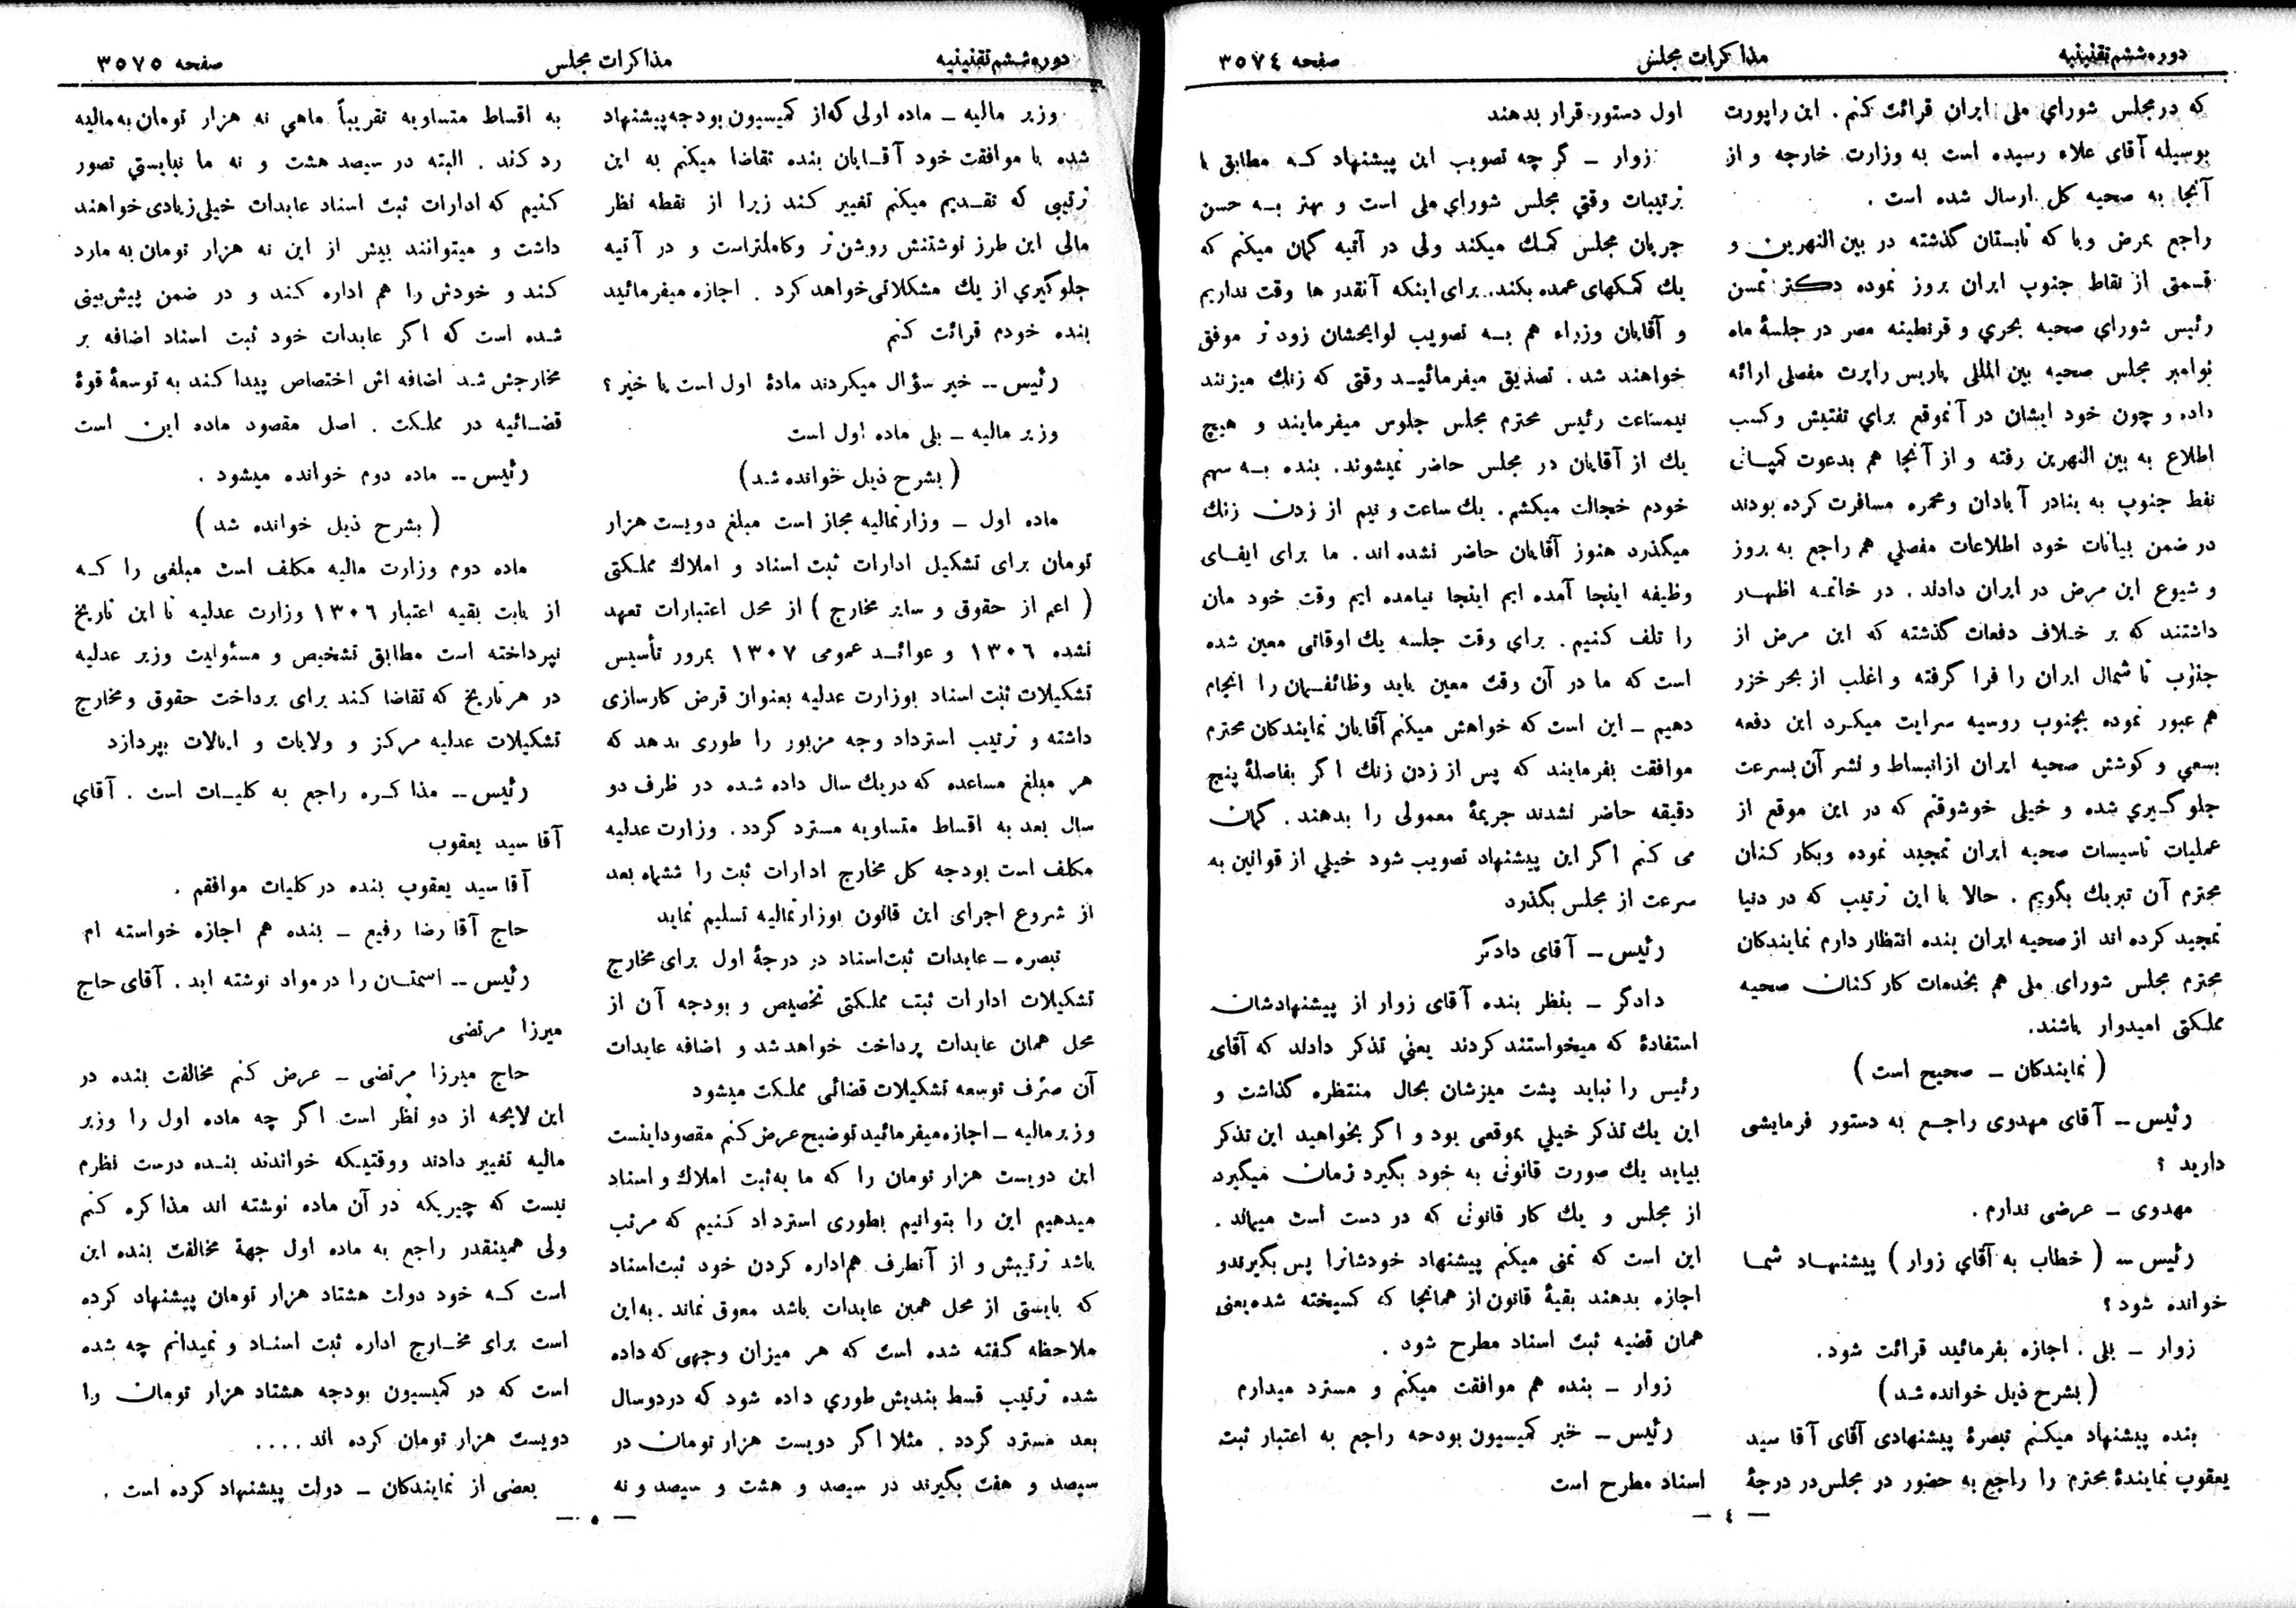 دوره ششم تقنینیه
مذاکرات مجلس
صفحه ۳۵۷٤
که در مجلس شورای ملی ایران قرائت کنم . این راپورت
بوسیله آقای علاء رسیده است به وزارت خارجه و از
آنجا به صحیه کل ارسال شده است .
راجع بمرض وبا که تابستان گذشته در بین النهرین و
قسمتی از نقاط جنوب ایران بروز نموده دکتر تمسن
رئیس شورای صحیه بحری و قرنطینه مصر در جلسهٔ ماه
نوامبر مجلس صحیه بین المللی پاریس راپرت مفصلی ارائه
داده و چون خود ایشان در آنموقع برای تفتیش و کسب
اطلاع به بین النهرین رفته و از آنجا هم بدعوت کمپانی
نفط جنوب به بنادر آبادان و محمره مسافرت کرده بودند
در ضمن بیانات خود اطلاعات مفصلی هم راجع به بروز
و شیوع این مرض در ایران دادند . در خاتمه اظهار
داشتند که بر خلاف دفعات گذشته که این مرض از
جنوب تا شمال ایران را فرا گرفته و اغلب از بحر خزر
هم عبور نموده بجنوب روسیه سرایت میکرد این دفعه
بسعی و کوشش صحیه ایران از انبساط و نشر آن بسرعت
جلوگیری شده و خیلی خوشوقتم که در این موقع از
عملیات تاسیسات صحیه ایران تمجید نموده وبکارکنان
محترم آن تبریك بگویم . حالا با این ترتیب که در دنیا
تمجید کرده اند از صحیه ایران بنده انتظار دارم نمایندکان
محترم مجلس شورای ملی هم بخدمات کارکنان صحیه
مملکتی امیدوار باشند.
( نمایندکان ــ صحیح است )
رئیس ــ آقای مهدوی راجع به دستور فرمایشی
دارید ؟
مهدوی ــ عرضی ندارم .
رئیس ــ ( خطاب به آقای زوار ) پیشنهاد شما
خوانده شود ؟
زوار ــ بلی . اجازه بفرمائید قرائت شود.
( بشرح ذیل خوانده شد )
بنده پیشنهاد میکنم تبصرهٔ پیشنهادی آقای آقا سید
یعقوب نمایندهٔ محترم را راجع به حضور در مجلس در درجهٔ
اول دستور قرار بدهند
زوار ــ گر چه تصویب این پیشنهاد که مطابق با
ترتیبات وقتی مجلس شورای ملی است و بهتر به حسن
جریان مجلس کمك میکند ولی در آتیه گمان میکنم که
یك کمکهای عمده بکند. برای اینکه آنقدر ها وقت نداریم
و آقایان وزراء هم به تصویب لوایحشان زود تر موفق
خواهند شد . تصدیق میفرمائید وقتی که زنك میزنند
نیمساعت رئیس محترم مجلس جلوس میفرمایند و هیچ
یك از آقایان در مجلس حاضر نمیشوند. بنده به سهم
خودم خجالت میکشم . یك ساعت و نیم از زدن زنك
میگذرد هنوز آقایان حاضر نشده اند . ما برای ایفای
وظیفه اینجا آمده ایم اینجا نیامده ایم وقت خود مان
را تلف کنیم . برای وقت جلسه یك اوقاتی معین شده
است که ما در آن وقت معین باید وظائفمان را انجام
دهیم ــ این است که خواهش میکنم آقایان نمایندکان محترم
موافقت بفرمایند که پس از زدن زنك اگر بفاصلهٔ پنج
دقیقه حاضر نشدند جریمهٔ معمولی را بدهند . گمان
می کنم اگر این پیشنهاد تصویب شود خیلی از قوانین به
سرعت از مجلس بگذرد
رئیس ــ آقای دادگر
دادگر ــ بنظر بنده آقای زوار از پیشنهادشان
استفادهٔ که میخواستند کردند یعنی تذکر دادند که آقای
رئیس را نباید پشت میزشان بحال منتظره گذاشت و
این یك تذکر خیلی بموقعی بود و اگر بخواهید این تذکر
بیاید یك صورت قانونی به خود بگیرد زمان میگیرد
از مجلس و یك کار قانونی که در دست است میماند .
این است که تمنی میکنم پیشنهاد خودشانرا پس بگیرندو
اجازه بدهند بقیهٔ قانون از همانجا که کسیخته شده یعنی
همان قضیه ثبت اسناد مطرح شود .
زوار ــ بنده هم موافقت میکنم و مسترد میدارم
رئیس ــ خبر کمیسیون بودجه راجع به اعتبار ثبت
اسناد مطرح است
— ٤ —
دوره ششم تقنینیه
مذاکرات مجلس
صفحه ۳۵۷۵
وزیر مالیه ــ ماده اولی که از کمیسیون بودجه پیشنهاد
شده با موافقت خود آقایان بنده تقاضا میکنم به این
ترتیبی که تقدیم میکنم تغییر کند زیرا از نقطه نظر
مالی این طرز نوشتنش روشن تر وکاملتر است و در آتیه
جلوگیری از یك مشکلاتی خواهد کرد . اجازه میفرمائید
بنده خودم قرائت کنم
رئیس ــ خیر سؤال میکردند مادهٔ اول است یا خیر ؟
وزیر مالیه ــ بلی ماده اول است
( بشرح ذیل خوانده شد )
ماده اول ــ وزارتمالیه مجاز است مبلغ دویست هزار
تومان برای تشکیل ادارات ثبت اسناد و املاك مملکتی
( اعم از حقوق و سایر مخارج ) از محل اعتبارات تعهد
نشده ۱۳۰٦ و عوائد عمومی ۱۳۰۷ بمرور تأسیس
تشکیلات ثبت اسناد بوزارت عدلیه بعنوان قرض کارسازی
داشته و ترتیب استرداد وجه مزبور را طوری بدهد که
هر مبلغ مساعده که دریك سال داده شده در ظرف دو
سال بعد به اقساط متساویه مسترد گردد . وزارت عدلیه
مکلف است بودجه کل مخارج ادارات ثبت را ششماه بعد
از شروع اجرای این قانون بوزارتمالیه تسلیم نماید
تبصره ــ عایدات ثبت اسناد در درجهٔ اول برای مخارج
تشکیلات ادارات ثبت مملکتی تخصیص و بودجه آن از
محل همان عایدات پرداخت خواهد شد و اضافه عایدات
آن صرف توسعه تشکیلات قضائی مملکت میشود
وزیر مالیه ــ اجازه میفرمائید توضیح عرض کنم مقصود اینست
این دویست هزار تومان را که ما به ثبت املاك و اسناد
میدهیم این را بتوانیم بطوری استرداد کنیم که مرتب
باشد ترتیبش و از آنطرف هم اداره کردن خود ثبت اسناد
که بایستی از محل همین عایدات باشد معوق نماند . به این
ملاحظه گفته شده است که هر میزان وجهی که داده
شده ترتیب قسط بندیش طوری داده شود که در دو سال
بعد مسترد گردد . مثلا اگر دویست هزار تومان در
سیصد و هفت بگیرند در سیصد و هشت و سیصد و نه
به اقساط متساویه تقریباً ماهی نه هزار تومان به مالیه
رد کند . البته در سیصد هشت و نه ما نبایستی تصور
کنیم که ادارات ثبت اسناد عایدات خیلی زیادی خواهند
داشت و میتوانند بیش از این نه هزار تومان به مارد
کند و خودش را هم اداره کند و در ضمن پیش بینی
شده است که اگر عایدات خود ثبت اسناد اضافه بر
مخارجش شد اضافه اش اختصاص پیدا کند به توسعهٔ قوهٔ
قضائیه در مملکت . اصل مقصود ماده این است
رئیس ــ ماده دوم خوانده میشود .
( بشرح ذیل خوانده شد )
ماده دوم وزارت مالیه مکلف است مبلغی را که
از بابت بقیه اعتبار ۱۳۰٦ وزارت عدلیه تا این تاریخ
نپرداخته است مطابق تشخیص و مسئولیت وزیر عدلیه
در هر تاریخ که تقاضا کند برای پرداخت حقوق و مخارج
تشکیلات عدلیه مرکز و ولایات و ایالات بپردازد
رئیس ــ مذاکره راجع به کلیات است . آقای
آقا سید یعقوب
آقا سید یعقوب بنده در کلیات موافقم .
حاج آقا رضا رفیع ــ بنده هم اجازه خواسته ام
رئیس ــ اسمتان را در مواد نوشته اید . آقای حاج
میرزا مرتضی
حاج میرزا مرتضی ــ عرض کنم مخالفت بنده در
این لایحه از دو نظر است اگر چه ماده اول را وزیر
مالیه تغییر دادند ووقتیکه خواندند بنده درست نظرم
نیست که چیریکه در آن ماده نوشته اند مذاکره کنم
ولی همینقدر راجع به ماده اول جهة مخالفت بنده این
است که خود دولت هشتاد هزار تومان پیشنهاد کرده
است برای مخارج اداره ثبت اسناد و نمیدانم چه شده
است که در کمیسیون بودجه هشتاد هزار تومان را
دویست هزار تومان کرده اند . . . .
بعضی از نمایندکان ــ دولت پیشنهاد کرده است .
— ۰ —